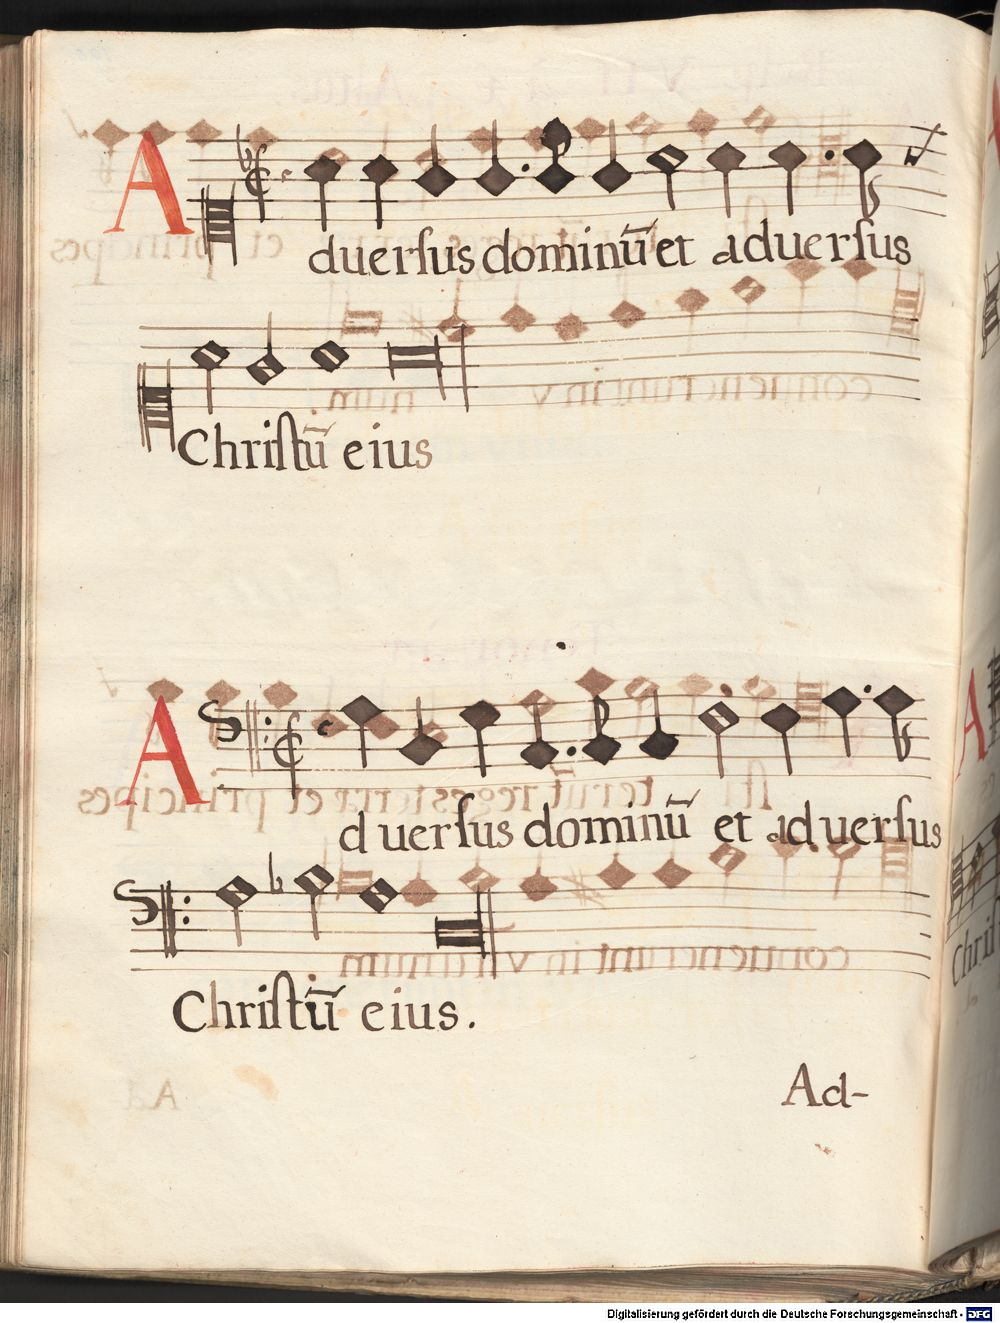 Aduerſus dominū et aduerſus
Chriſtū eius
Aduerſus dominū et aduerſus
Chriſtū eius.
Ad-
Digitalisierung gefördert durch die Deutsche Forschungsgemeinschaft - DFG